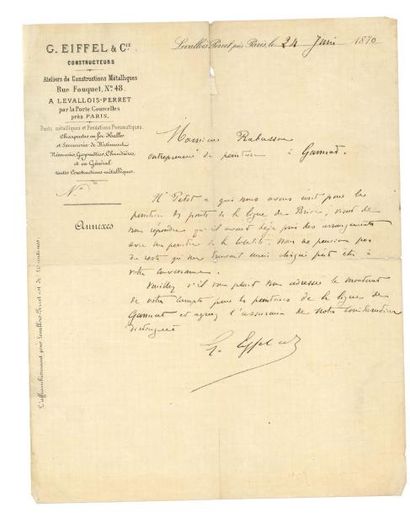 G. EIFFEL & Cie
CONSTRUCTEURS
Ateliers de Constructions Métalliques
Rue Fouquet, No. 48
A LEVALLOIS-PERRET
par la Porte Courcelles
près PARIS,
Ponts métalliques et Fondations Pneumatiques
Charpentes en fer, Halles
et Serrurerie de Bâtiment,
Réservoirs, Gazomètres, Chaudières
et en Général
toutes Constructions métalliques.
No
Annexes
Levallois-Perret près Paris, le 24 Juin 1870
Monsieur
entrepreneur de peinture à Gannat.
M. Petit à qui nous avons écrit pour les
peintures des ponts de la ligne de vient de
nous répondre qu'il avait déjà pris des arrangements
avec un peintre de la localité. Nous ne pensons pas
de reste que ce travail aurait été à
votre convenance.
Veuillez s'il vous plaît nous adresser le montant
de votre compte pour les peintures de la ligne de
Gannat et agréez l'assurance de notre considération
distinguée
G. Eiffel & Cie